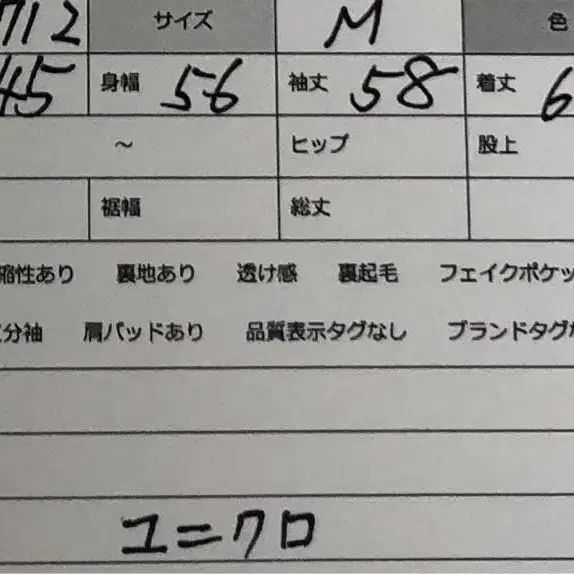 712 サイズ M 色
45 身幅 56 袖丈 58 着丈 6
～ ヒップ 股上
裾幅 総丈
縮性あり 裏地あり 透け感 裏起毛 フェイクポケッ
分袖 肩パッドあり 品質表示タグなし ブランドタグな
ユニクロ